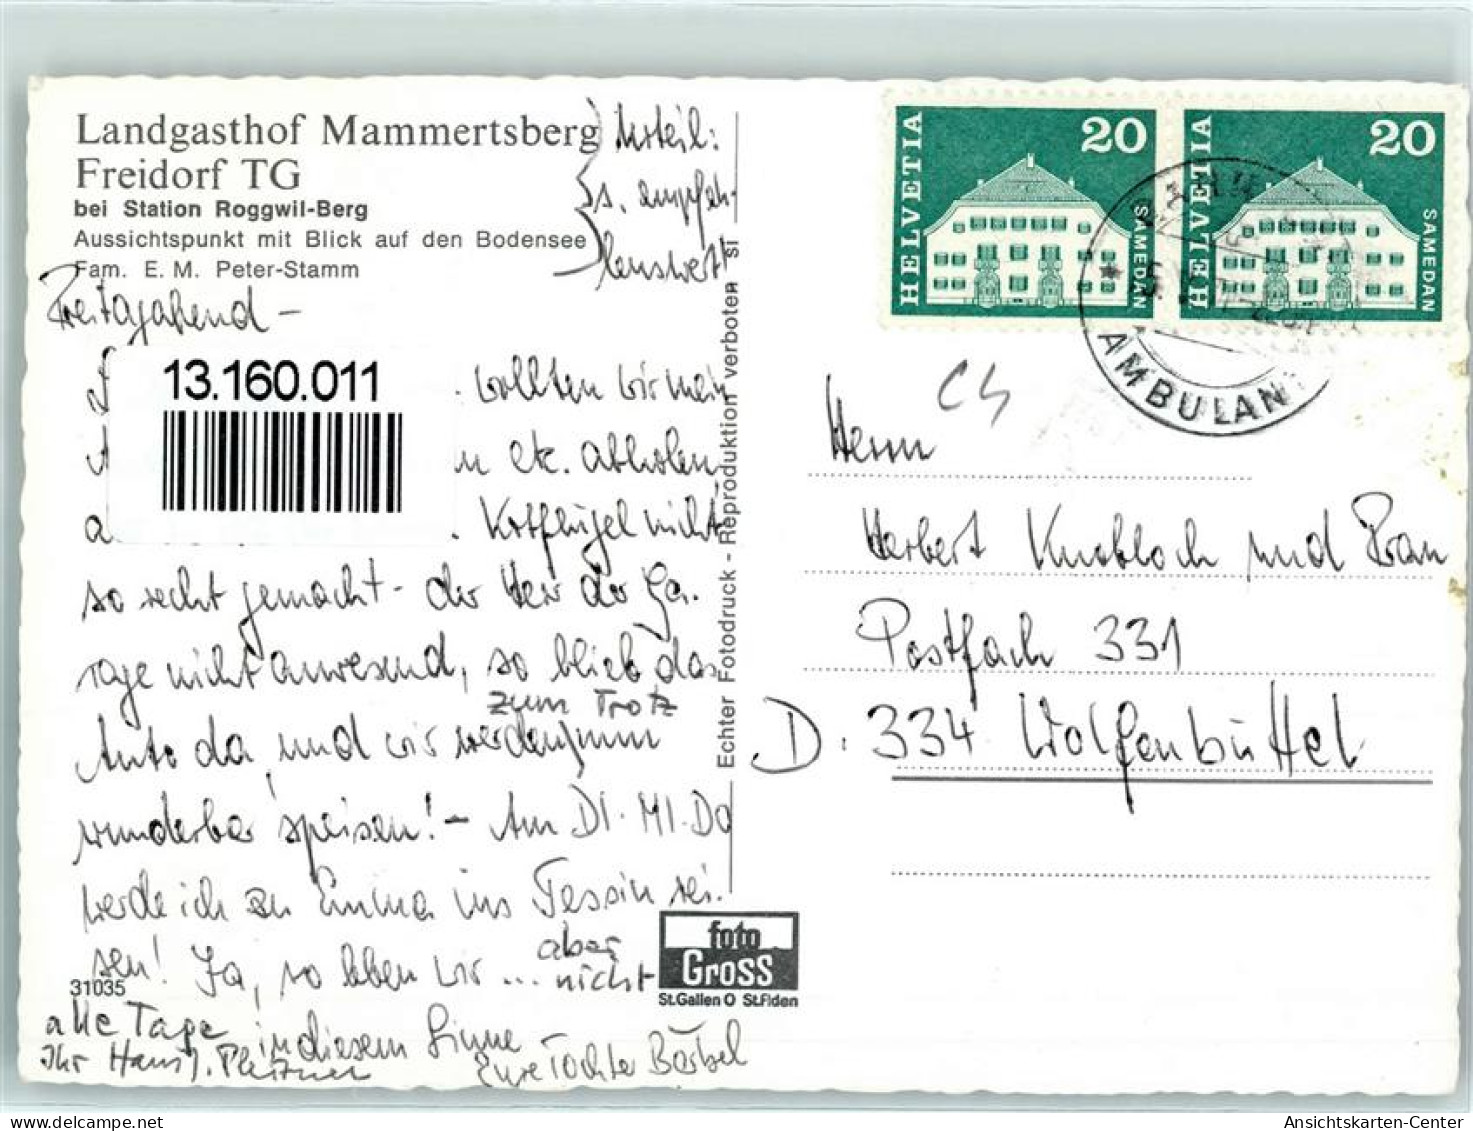 Landgasthof Mammertsberg
Freidorf TG
bei Station Roggwil-Berg
Aussichtspunkt mit Blick auf den Bodensee
Fam. E. M. Peter-Stamm
Urteil:
s. empfeh-
lenswert
Freitagabend -
13.160.011
wollten wir mein
etc. abholen,
Kotflügel nicht
so recht gemacht - der Herr der Ga-
rage nicht anwesend, so blieb das
zum Trotz
Auto da, und wir werden
wunderbar speisen! - Am DI. MI. Do
werde ich zu Emma ins Tessin rei-
sen! Ja, so leben wir ... aber nicht
31035
alle Tage
in diesem Sinne -
Ihr Hans J.
Eure Tochter Bärbel
Echter Fotodruck - Reproduktion verboten SI
foto
Gross
St.Gallen O St.Fiden
HELVETIA
20
SAMEDAN
HELVETIA
20
SAMEDAN
AMBULAN
Herrn
Herbert Knobloch und Frau
Postfach 331
D. 334 Wolfenbüttel
Ansichtskarten-Center
delcampe.net